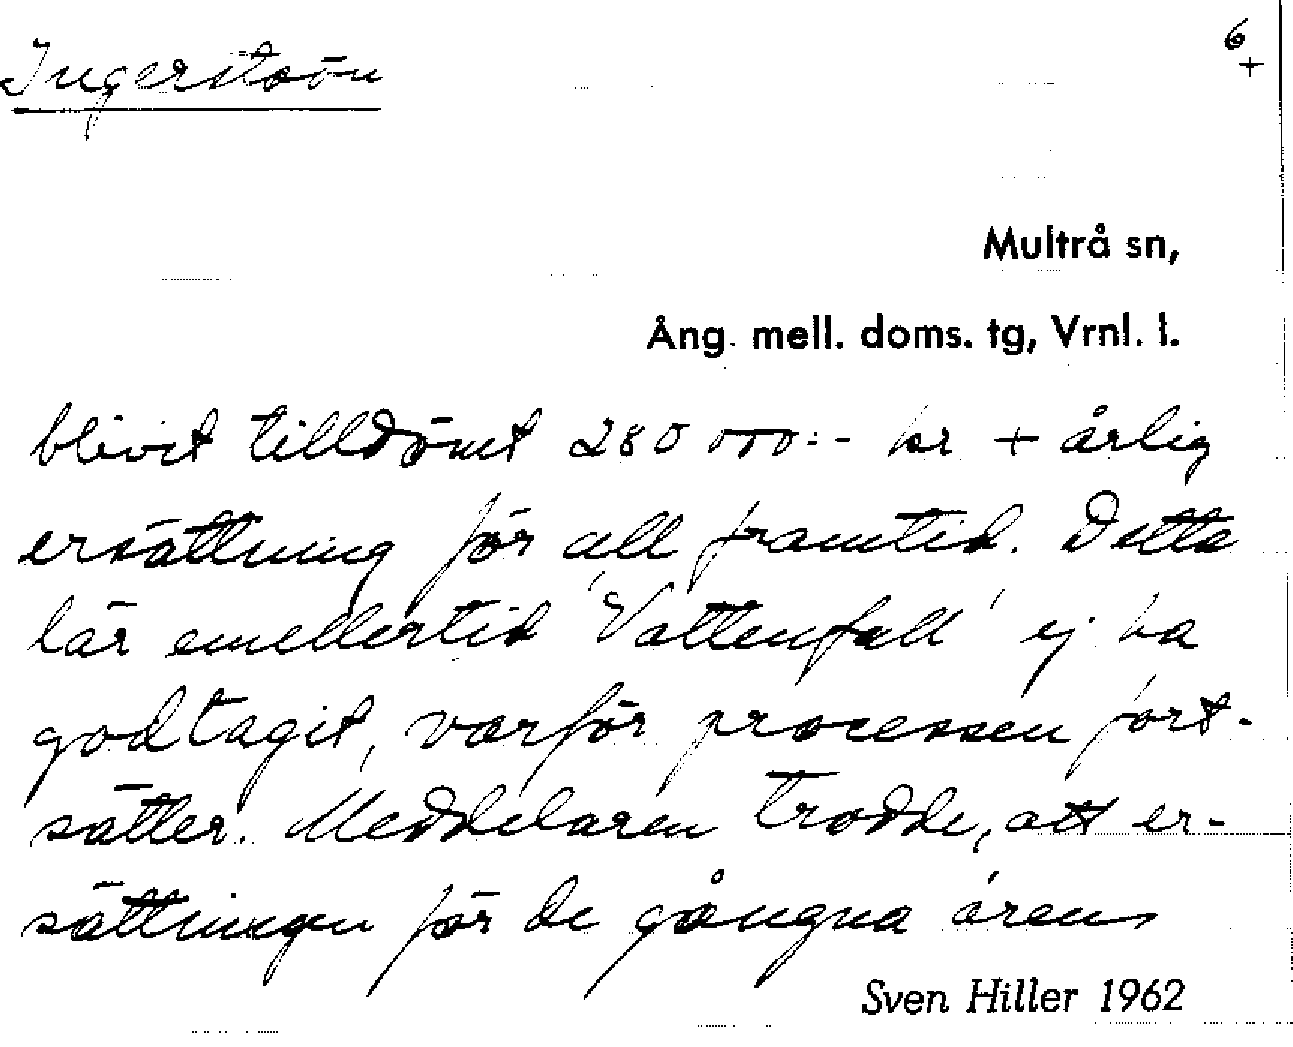 Ingerstaön
6
+
Multrå sn,
Ång. mell. doms. tg, Vrnl. l.
blivit tilldömt 280 000:- kr + årlig
ersättning för all framtid. Detta
lär emellertid 'Vattenfall' ej ha
godtagit, varför processen fort-
sätter. Meddelaren trodde, att er-
sättningen för de gångna årens
Sven Hiller 1962